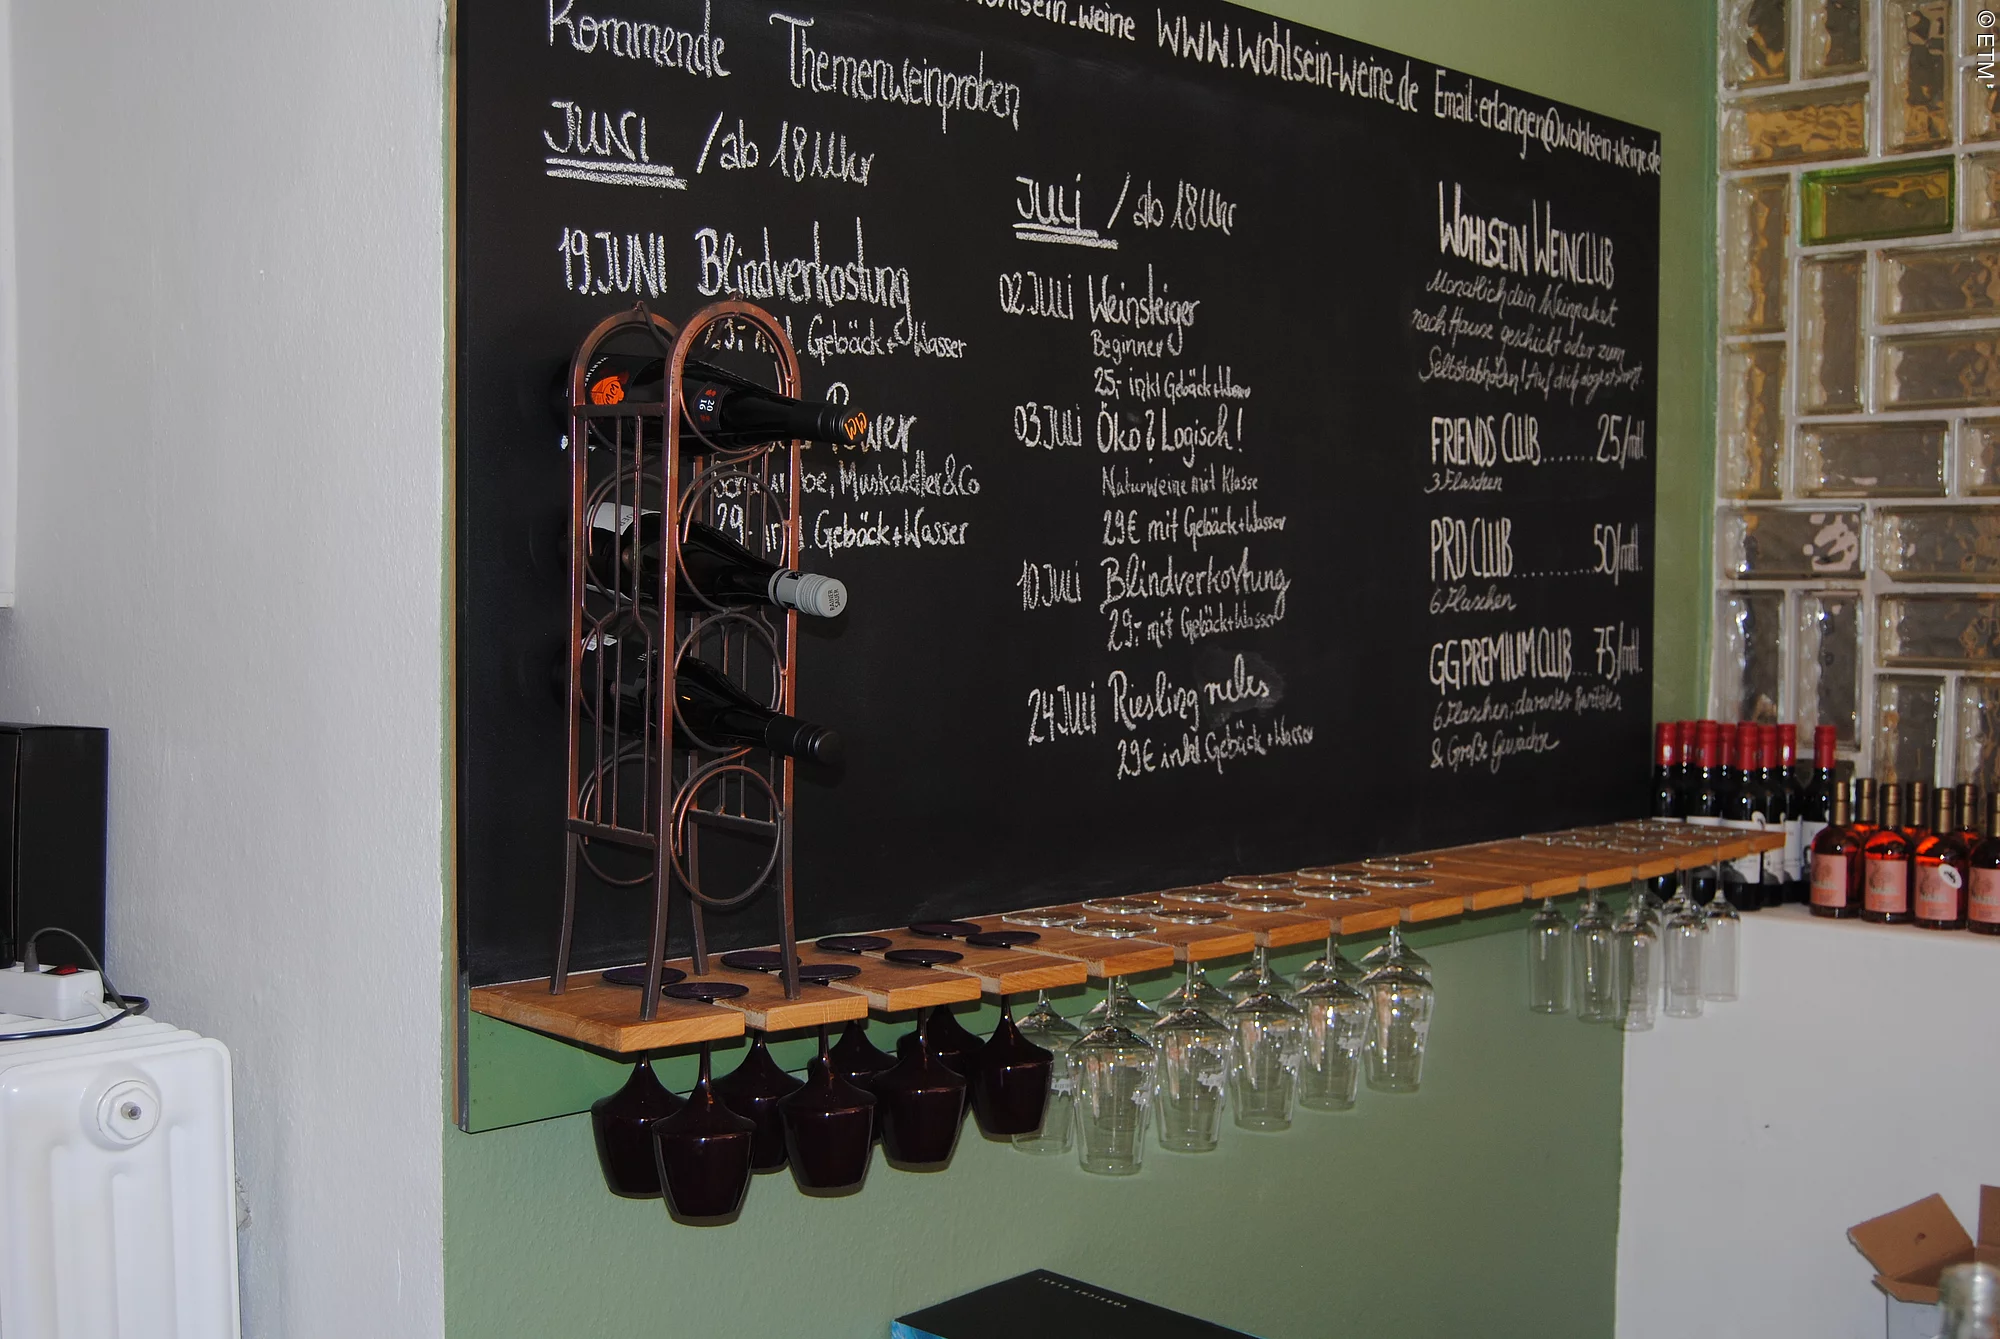 wohlsein-weine www.wohlsein-weine.de Email: erlangen@wohlsein-weine.de
Kommende Themenweinproben
JUNI /ab 18 Uhr
19. JUNI Blindverkostung
Gebäck + Wasser
Power
Muskateller & Co
29,- inkl. Gebäck + Wasser
JULI /ab 18 Uhr
02. JULI Weinsteiger
Beginner
25,- inkl Gebäck + Wasser
03. JULI Öko? Logisch!
Naturweine mit Klasse
29€ mit Gebäck + Wasser
10. JULI Blindverkostung
29,- mit Gebäck + Wasser
24 JULI Riesling rules
29€ inkl. Gebäck + Wasser
WOHLSEIN WEINCLUB
Monatlich dein Weinpaket
nach Hause geschickt oder zum
Selbstabholen! Auf dich abgestimmt.
FRIENDS CLUB....... 25/mtl.
3 Flaschen
PRO CLUB........... 50/mtl.
6 Flaschen
GG PREMIUM CLUB... 75/mtl.
6 Flaschen, darunter Raritäten
& Große Gewächse
2016
RAINER SAUER
© ETM